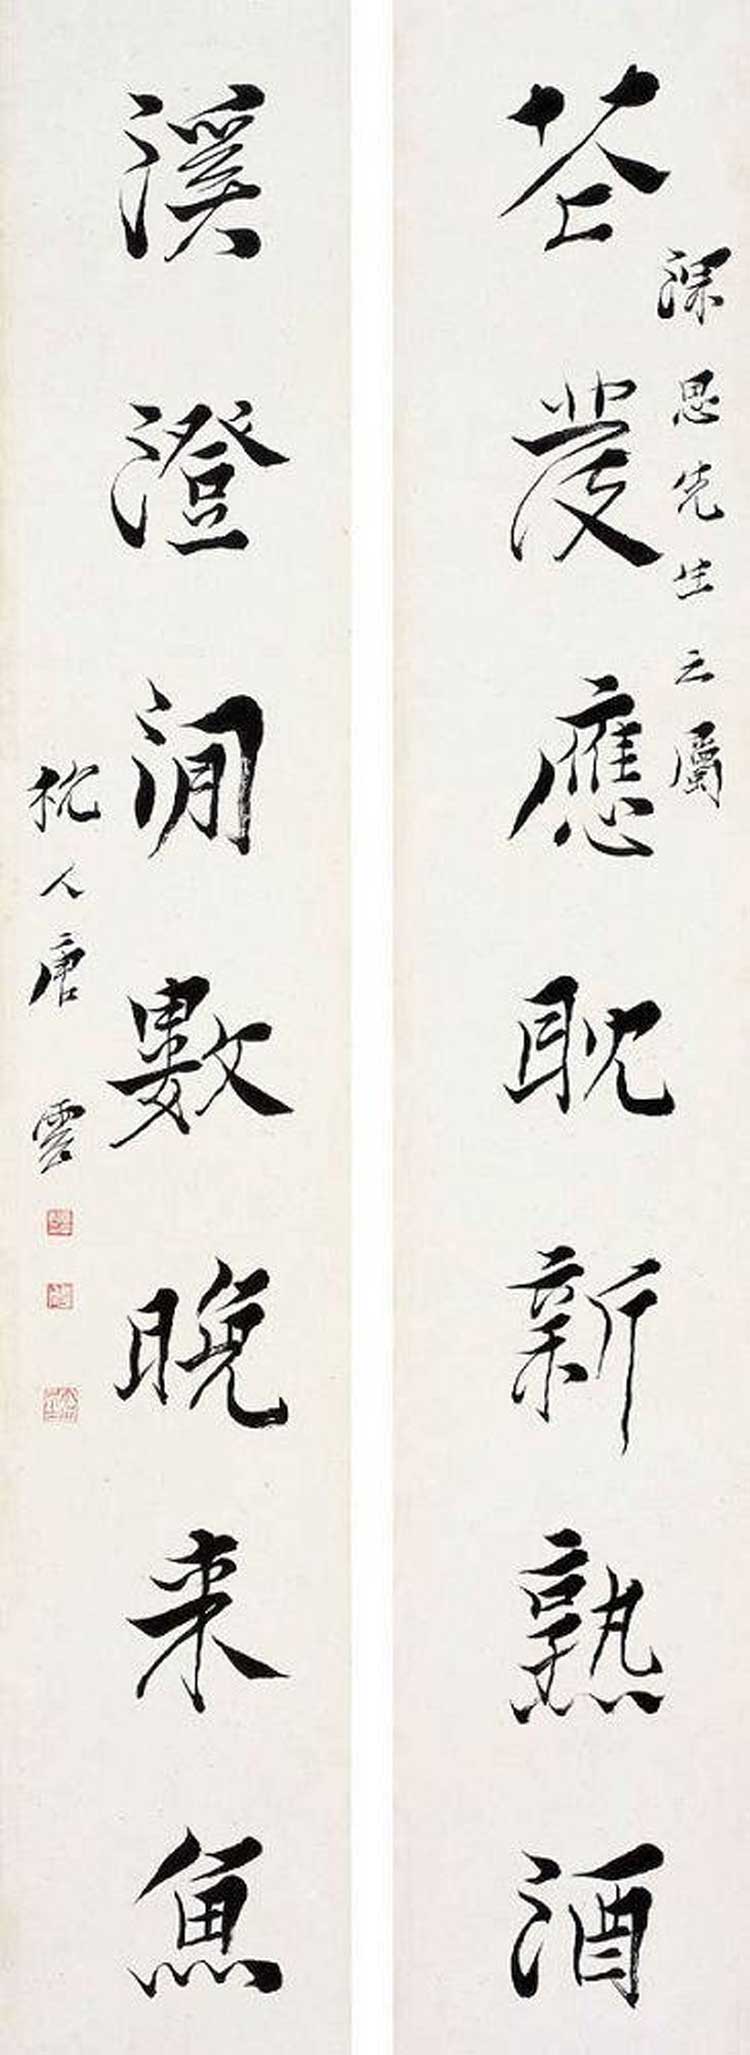 深思先生之屬
花發應耽新熟酒
溪澄閒數晚來魚
杭人唐雲